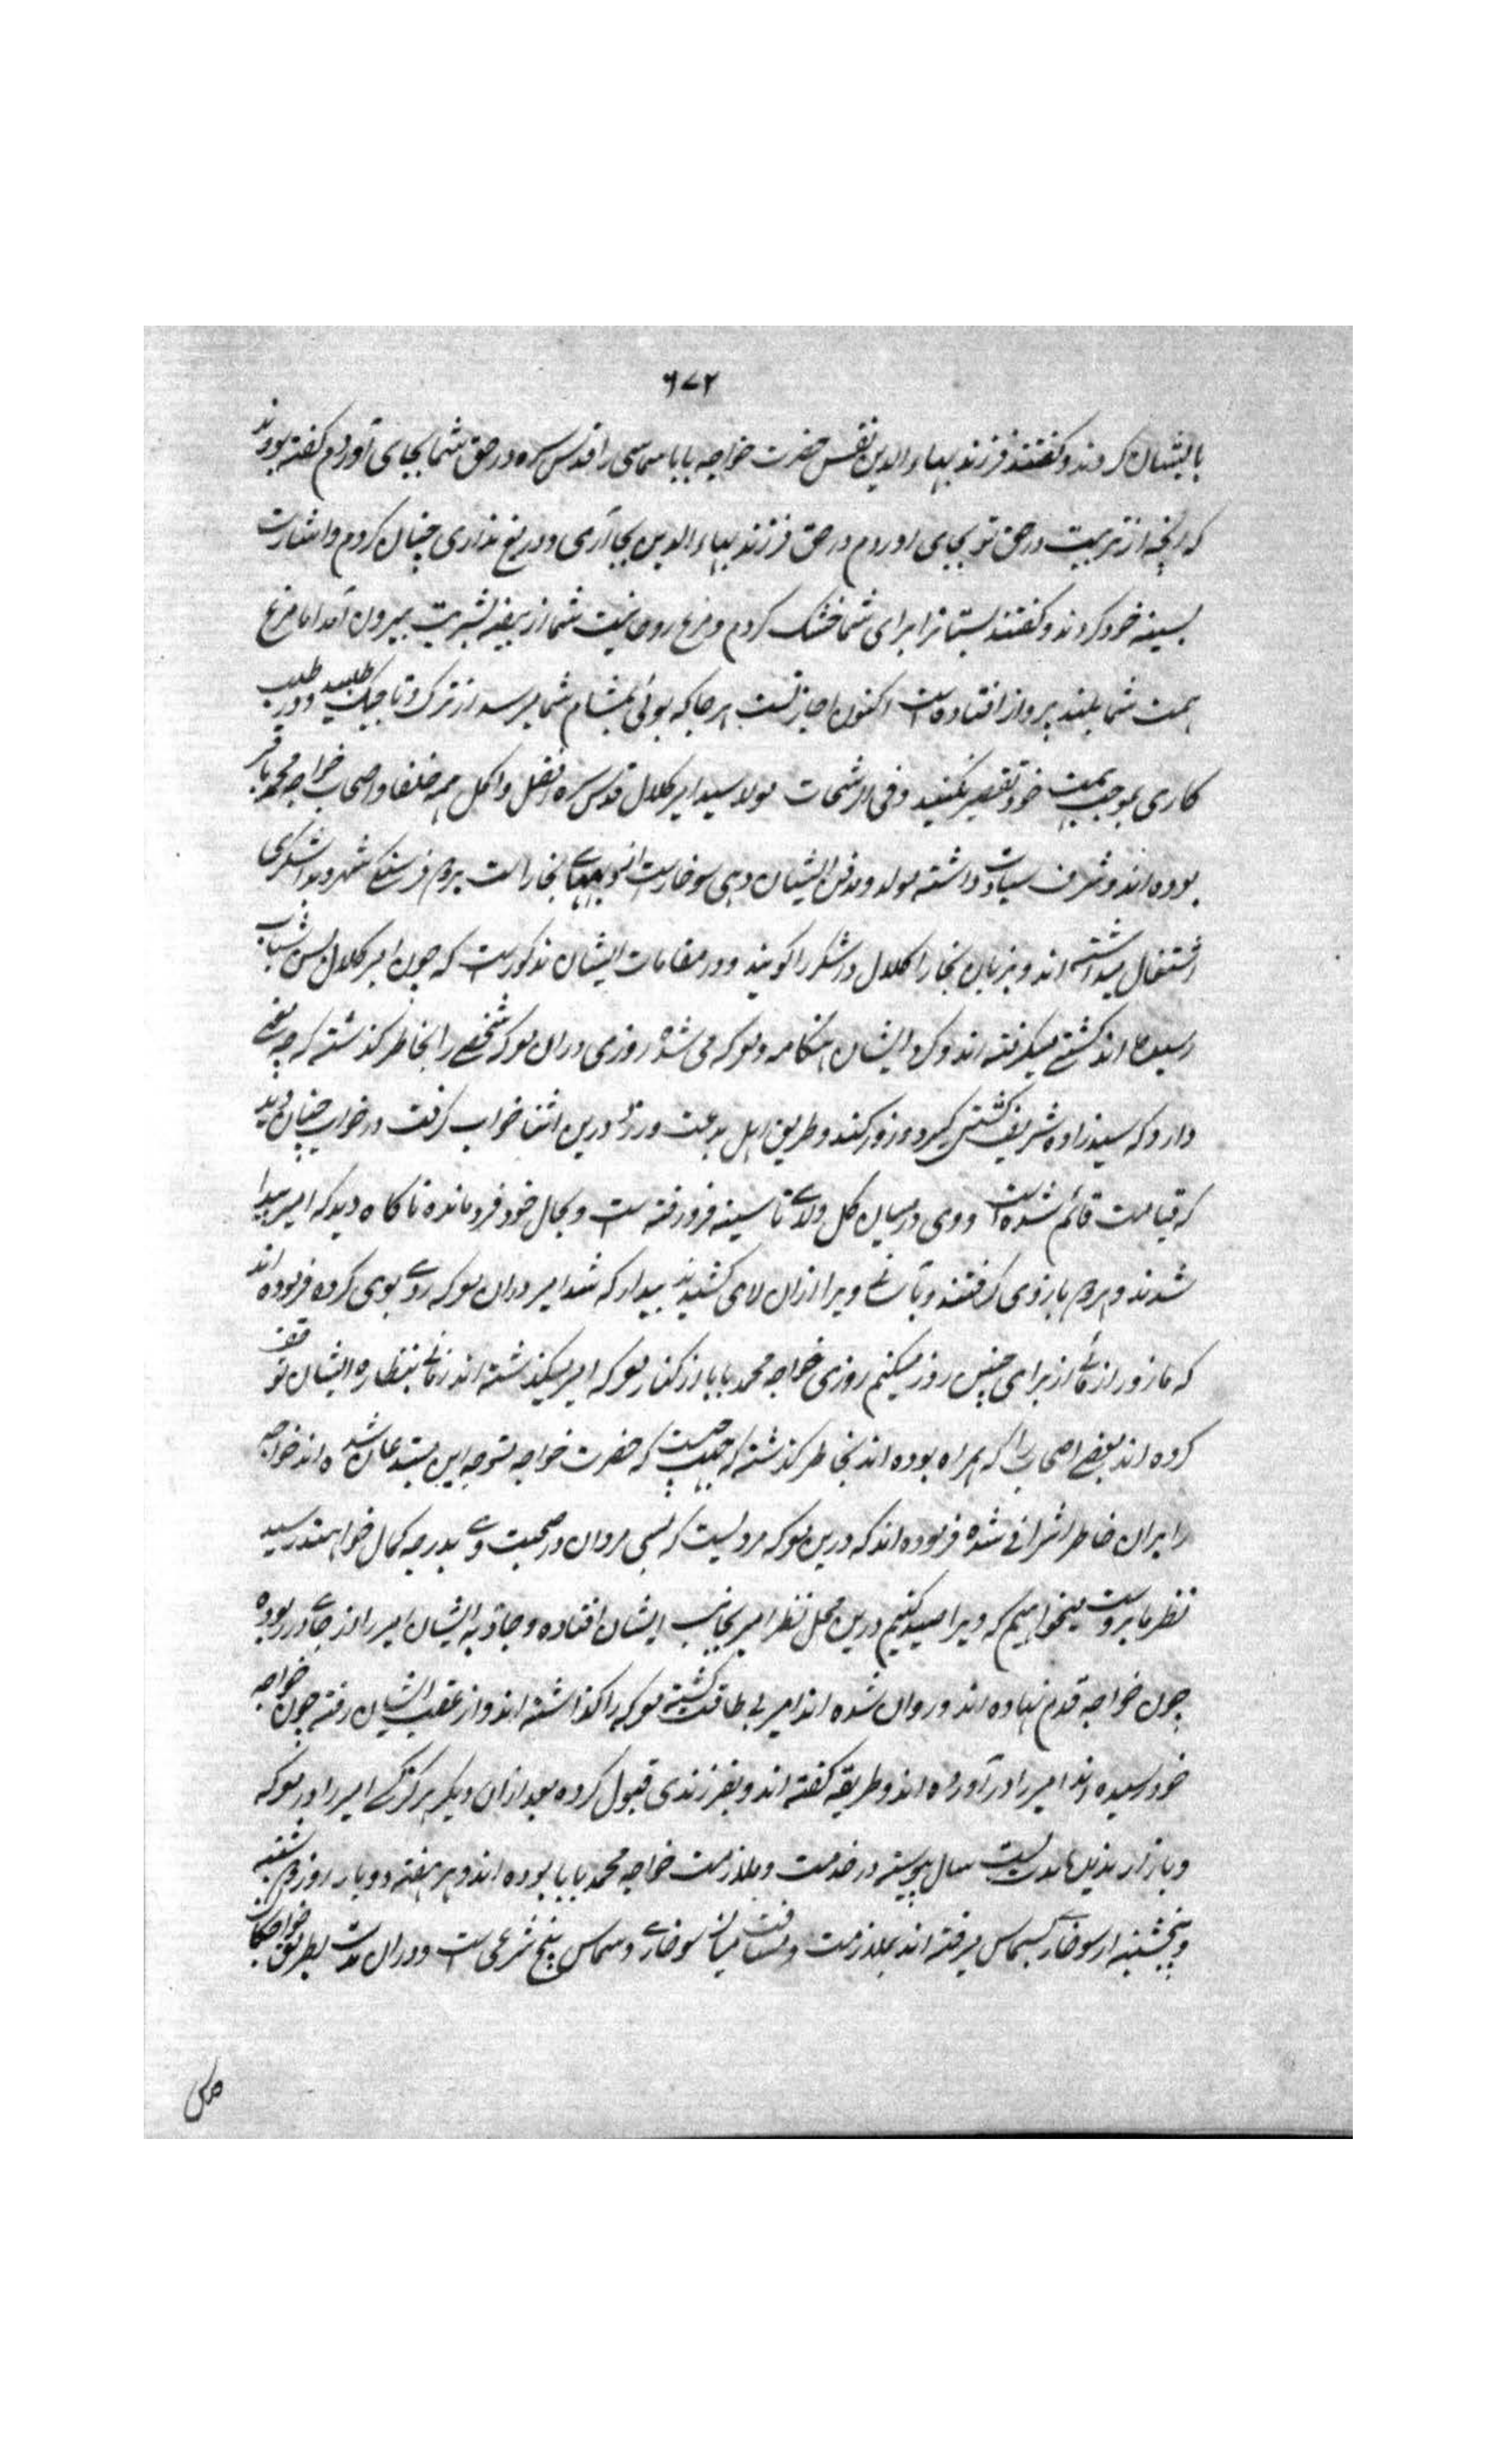 ۶۷۲
بایشان کردند و گفتند فرزند بهاء الدین نفس حضرت خواجه بابا سماسی را قدس سره در حق شما بجای آوردم گفته بودند
که آنچه از تربیت در حق تو بجای اوردم در حق فرزند بهاء الدین بجا آری و دریغ نداری چنان کردم و اشارت
بسینه خود کردند و گفتند پستانرا برای شما خشک کردم و مرغ روحانیت شما از بیضه بشریت بیرون آمد اما مرغ
همت شما بلند پرواز افتاده است اکنون اجازتست هر جا که بوئی بمشام شما میرسد از ترک و تاجیک طلبید و در طلب
کاری بموجب همت خود تقصیر نکنید و فی الرشحات مولا سید امیر کلال قدس سره افضل و اکمل همه خلفا و اصحاب خواجه محمد بابا
بوده اند و شرف سیادت داشته مولد و مدفن ایشان دهی سوخارست از دیههای بخارا است بدو فرسنگ شهر و بداشگری
اشتغال میداشته اند و بزبان بخارا کلال داشگر را گویند و در مقامات ایشان مذکورست که چون امیر کلال بسن شباب
رسیده اند کشتی میگرفته اند و گرد ایشان هنگامه و معرکه می شده روزی در ان معرکه شخصی را بخاطر گذشته که چه معنی
دارد که سیدزاده شریف کشتی گیرد و زور کند و طریق اهل بدعت ورزد درین اثنا خواب گرفت در خواب چنان دید
که قیامت قائم شده است و وی در میان گل و لای تا سینه فرو رفته است و بحال خود فرو مانده ناگاه دید که امیر پیدا
شدند و هر دو بازوی گرفتند و بآسانی ویرا ازان لای کشیدند بیدار که شد امیر در ان معرکه روی بوی کرده فرموده اند
که ما زور ازمائی از برای چنین روز میکنیم روزی خواجه محمد بابا از کنار معرکه امیر میگذشته اند زمانی بنظاره ایشان توقف
کرده اند بعضی اصحاب را که همراه بوده اند بخاطر گذشته که حکمت چیست که حضرت خواجه متوجه این مبتدعان شده اند خواجه
را بران خاطر اشرافی شده فرموده اند که درین معرکه مردیست که بسی مردان در صحبت وی بدرجه کمال خواهند رسید
نظر ما بروست میخواهیم که ویرا صید کنیم درین محل نظر امیر بجانب ایشان افتاده و جاذبه ایشان امیر را از جای در ربوده
چون خواجه قدم نهاده اند و روان شده اند امیر بی طاقت گشته معرکه را گذاشته اند و از عقب ایشان رفته چون خواجه
خود رسیده اند امیر را درآورده اند و طریقه گفته اند و بفرزندی قبول کرده بعد ازان دیگر هرگز کسی امیر را در معرکه
و بازار ندیده مدت بیست سال پیوسته در خدمت و ملازمت خواجه محمد بابا بوده اند و هر هفته دو بار روز دوشنبه
و پنجشنبه از سوخار بسماس میرفته اند بملازمت و مسافت میان سوخاری و سماس پنج شرعی ست و در ان مدت بطریق خواجگان